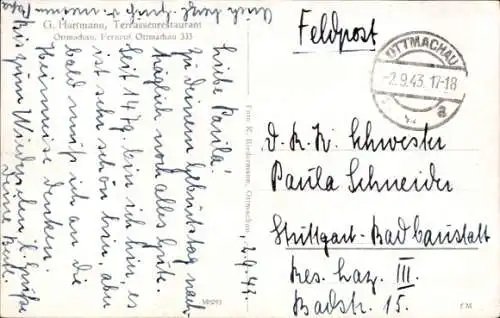 G. Hartmann, Terrassenrestaurant
Ottmachau, Fernruf Ottmachau 333
Feldpost
OTTMACHAU
-2.9.43. 17-18
a
2.9.43.
Liebe Paula!
Zu deinem Geburtstag nach-
träglich noch alles Gute.
Seit 14 Tg. bin ich hier, es
ist sehr schön hier, aber
bald muß ich an die
Heimreise denken.
Bis zum Wiedersehen h. Grüße
Deine
Foto K. Biedermann, Ottmachau
D.R.K. Schwester
Paula Schneider
Stuttgart-Bad Cannstatt
Res. Laz. III.
Badstr. 15.